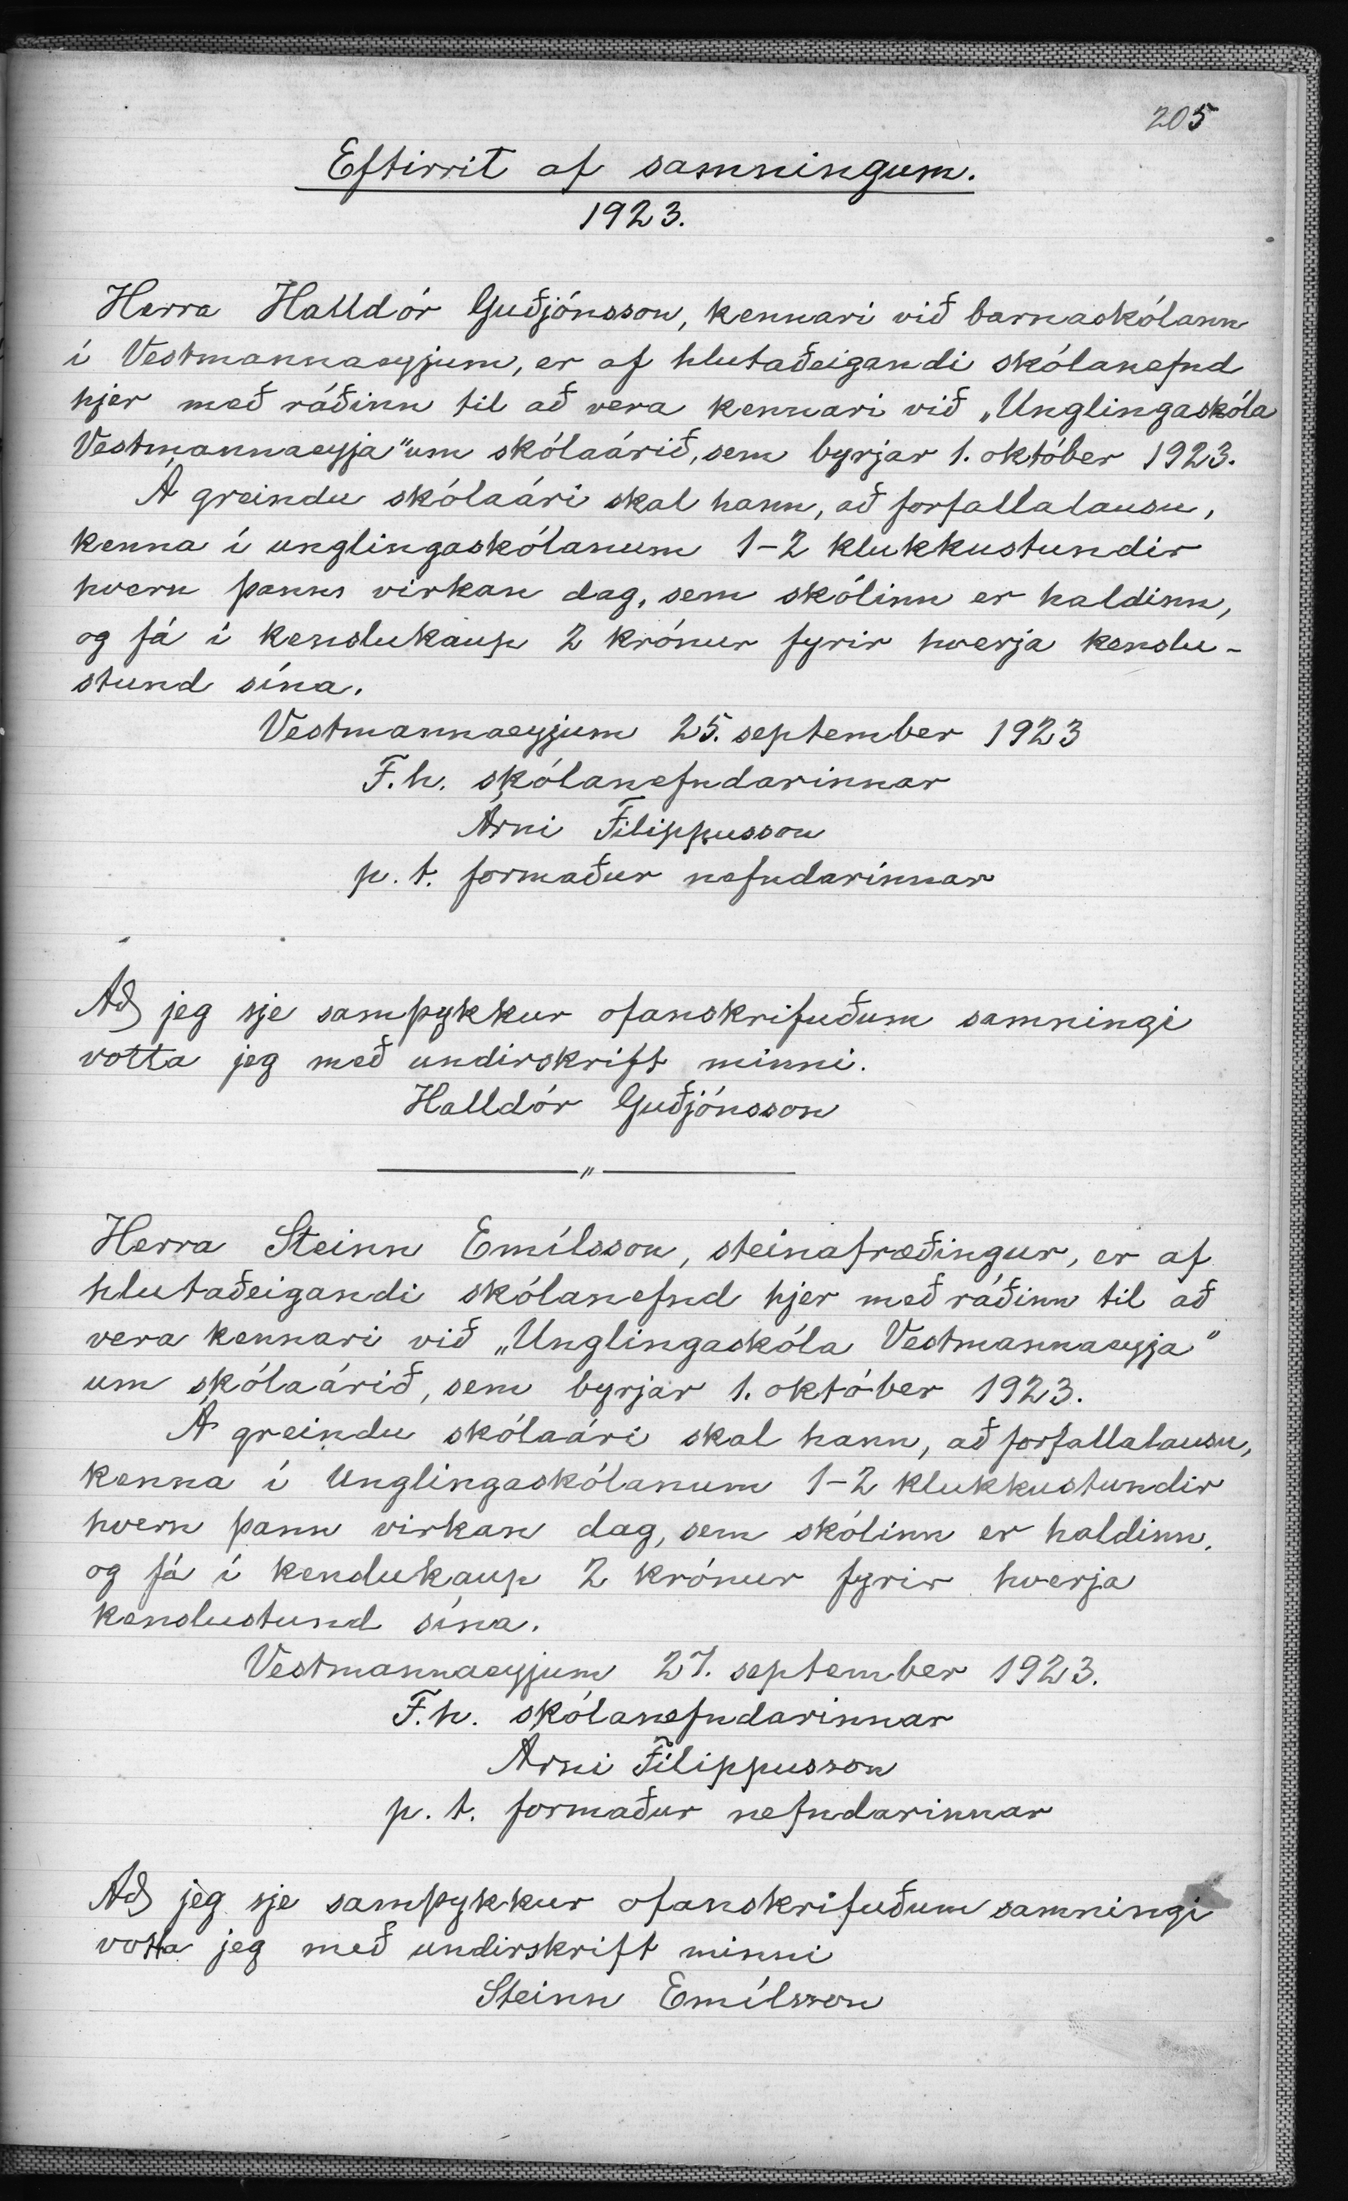 205
Eftirrit af samningum.
1923.
Herra Halldór Guðjónsson, kennari við barnaskólann
í Vestmannaeyjum, er af hlutaðeigandi skólanefnd
hjer með ráðinn til að vera kennari við „Unglingaskóla
Vestmannaeyja" um skólaárið, sem byrjar 1. október 1923.
Á greindu skólaári skal hann, að forfallalausu,
kenna í unglingaskólanum 1-2 klukkustundir
hvern þann virkan dag, sem skólinn er haldinn,
og fá í kenslukaup 2 krónur fyrir hverja kenslu-
stund sína.
Vestmannaeyjum 25. september 1923
F.h. skólanefndarinnar
Árni Filippusson
p. t. formaður nefndarinnar
Að jeg sje samþykkur ofanskrifuðum samningi
votta jeg með undirskrift minni.
Halldór Guðjónsson
"
Herra Steinn Emílsson, steinafræðingur, er af
hlutaðeigandi skólanefnd hjer með ráðinn til að
vera kennari við „Unglingaskóla Vestmannaeyja"
um skólaárið, sem byrjar 1. október 1923.
Á greindu skólaári skal hann, að forfallalausu,
kenna í Unglingaskólanum 1-2 klukkustundir
hvern þann virkan dag, sem skólinn er haldinn,
og fá í kenslukaup 2 krónur fyrir hverja
kenslustund sína.
Vestmannaeyjum 27. september 1923.
F.h. skólanefndarinnar
Árni Filippusson
p. t. formaður nefndarinnar
Að jeg sje samþykkur ofanskrifuðum samningi
votta jeg með undirskrift minni
Steinn Emílsson